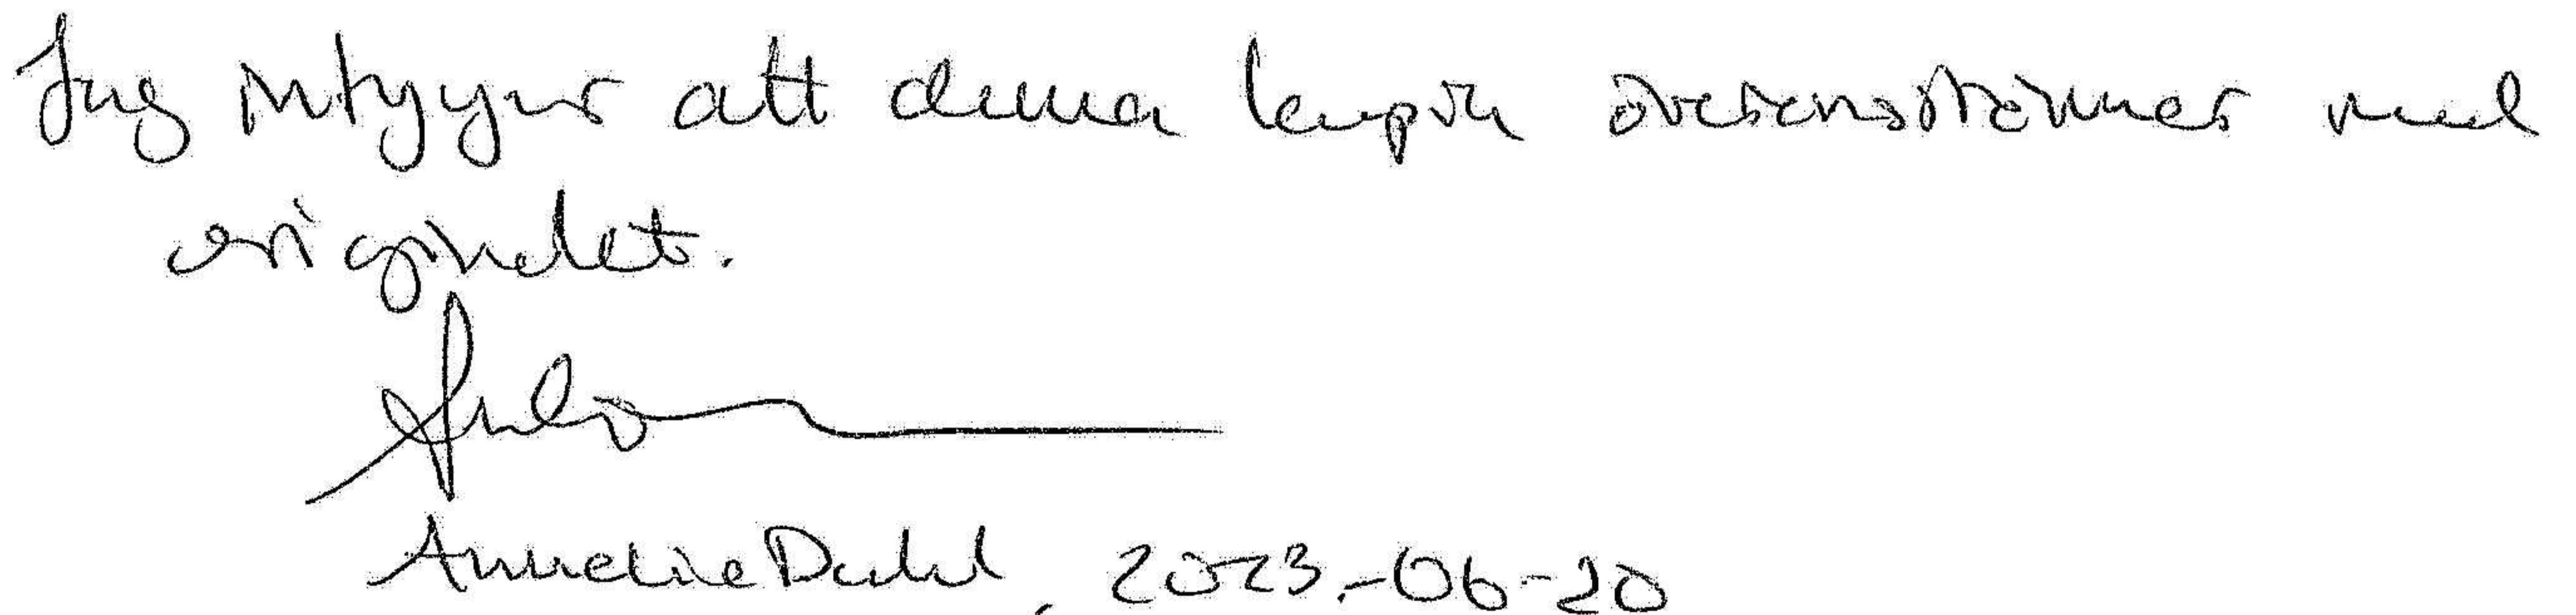 Jag intygar att denna kopia överensstämmer med
originalet.
Annelie Dahl, 2023-06-20